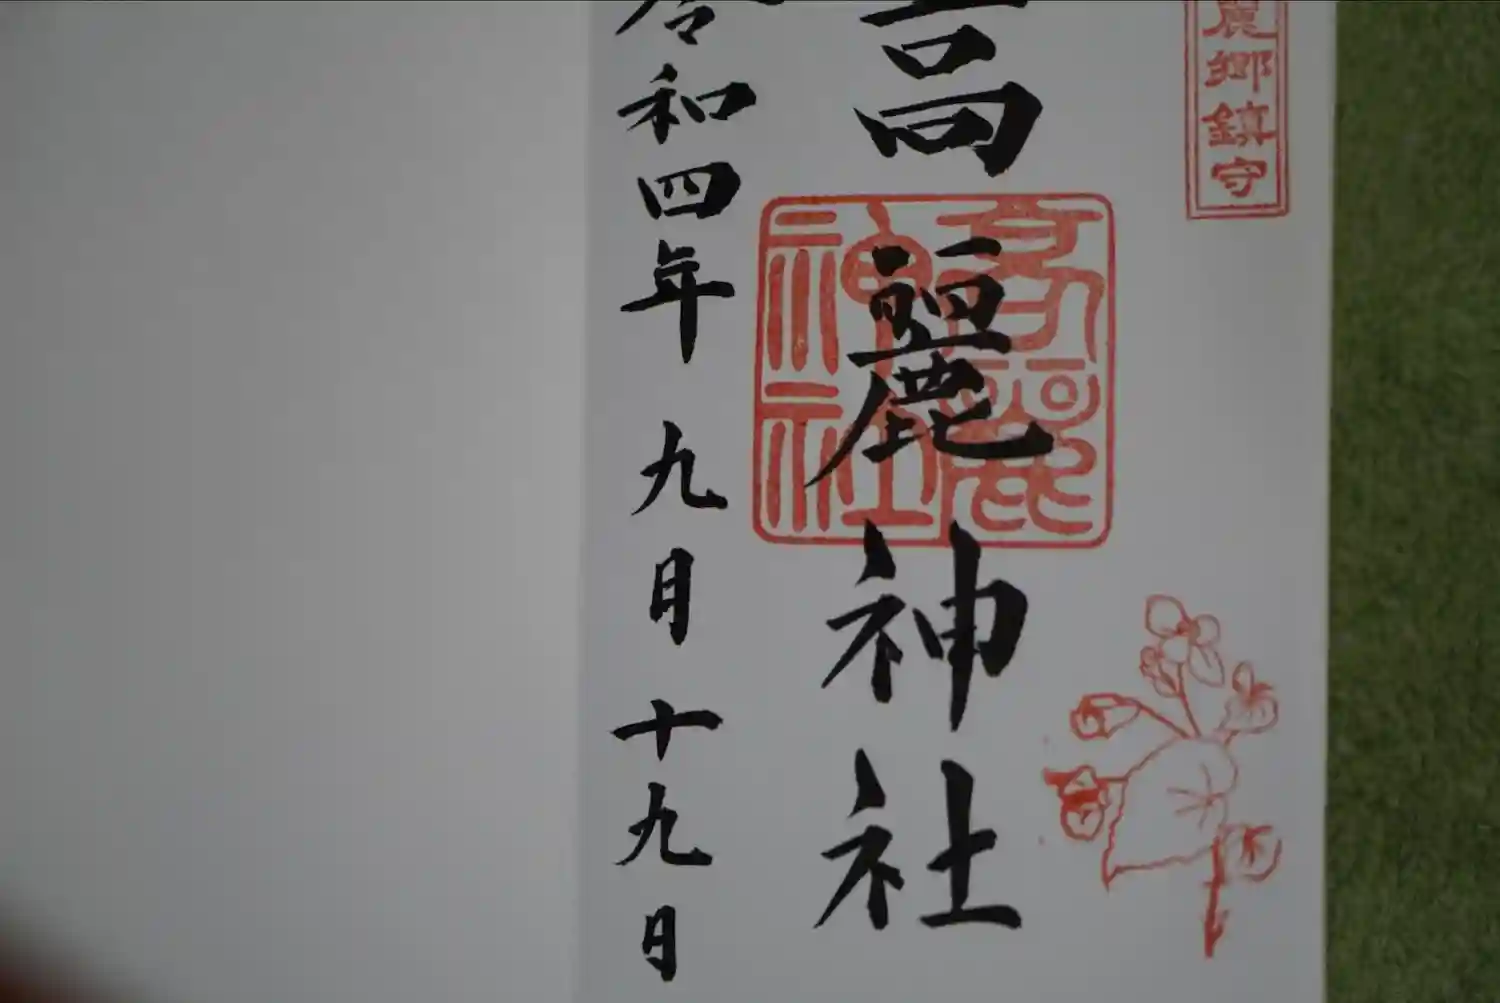 麗郷鎮守
高麗神社
高麗神社
令和四年九月十九日